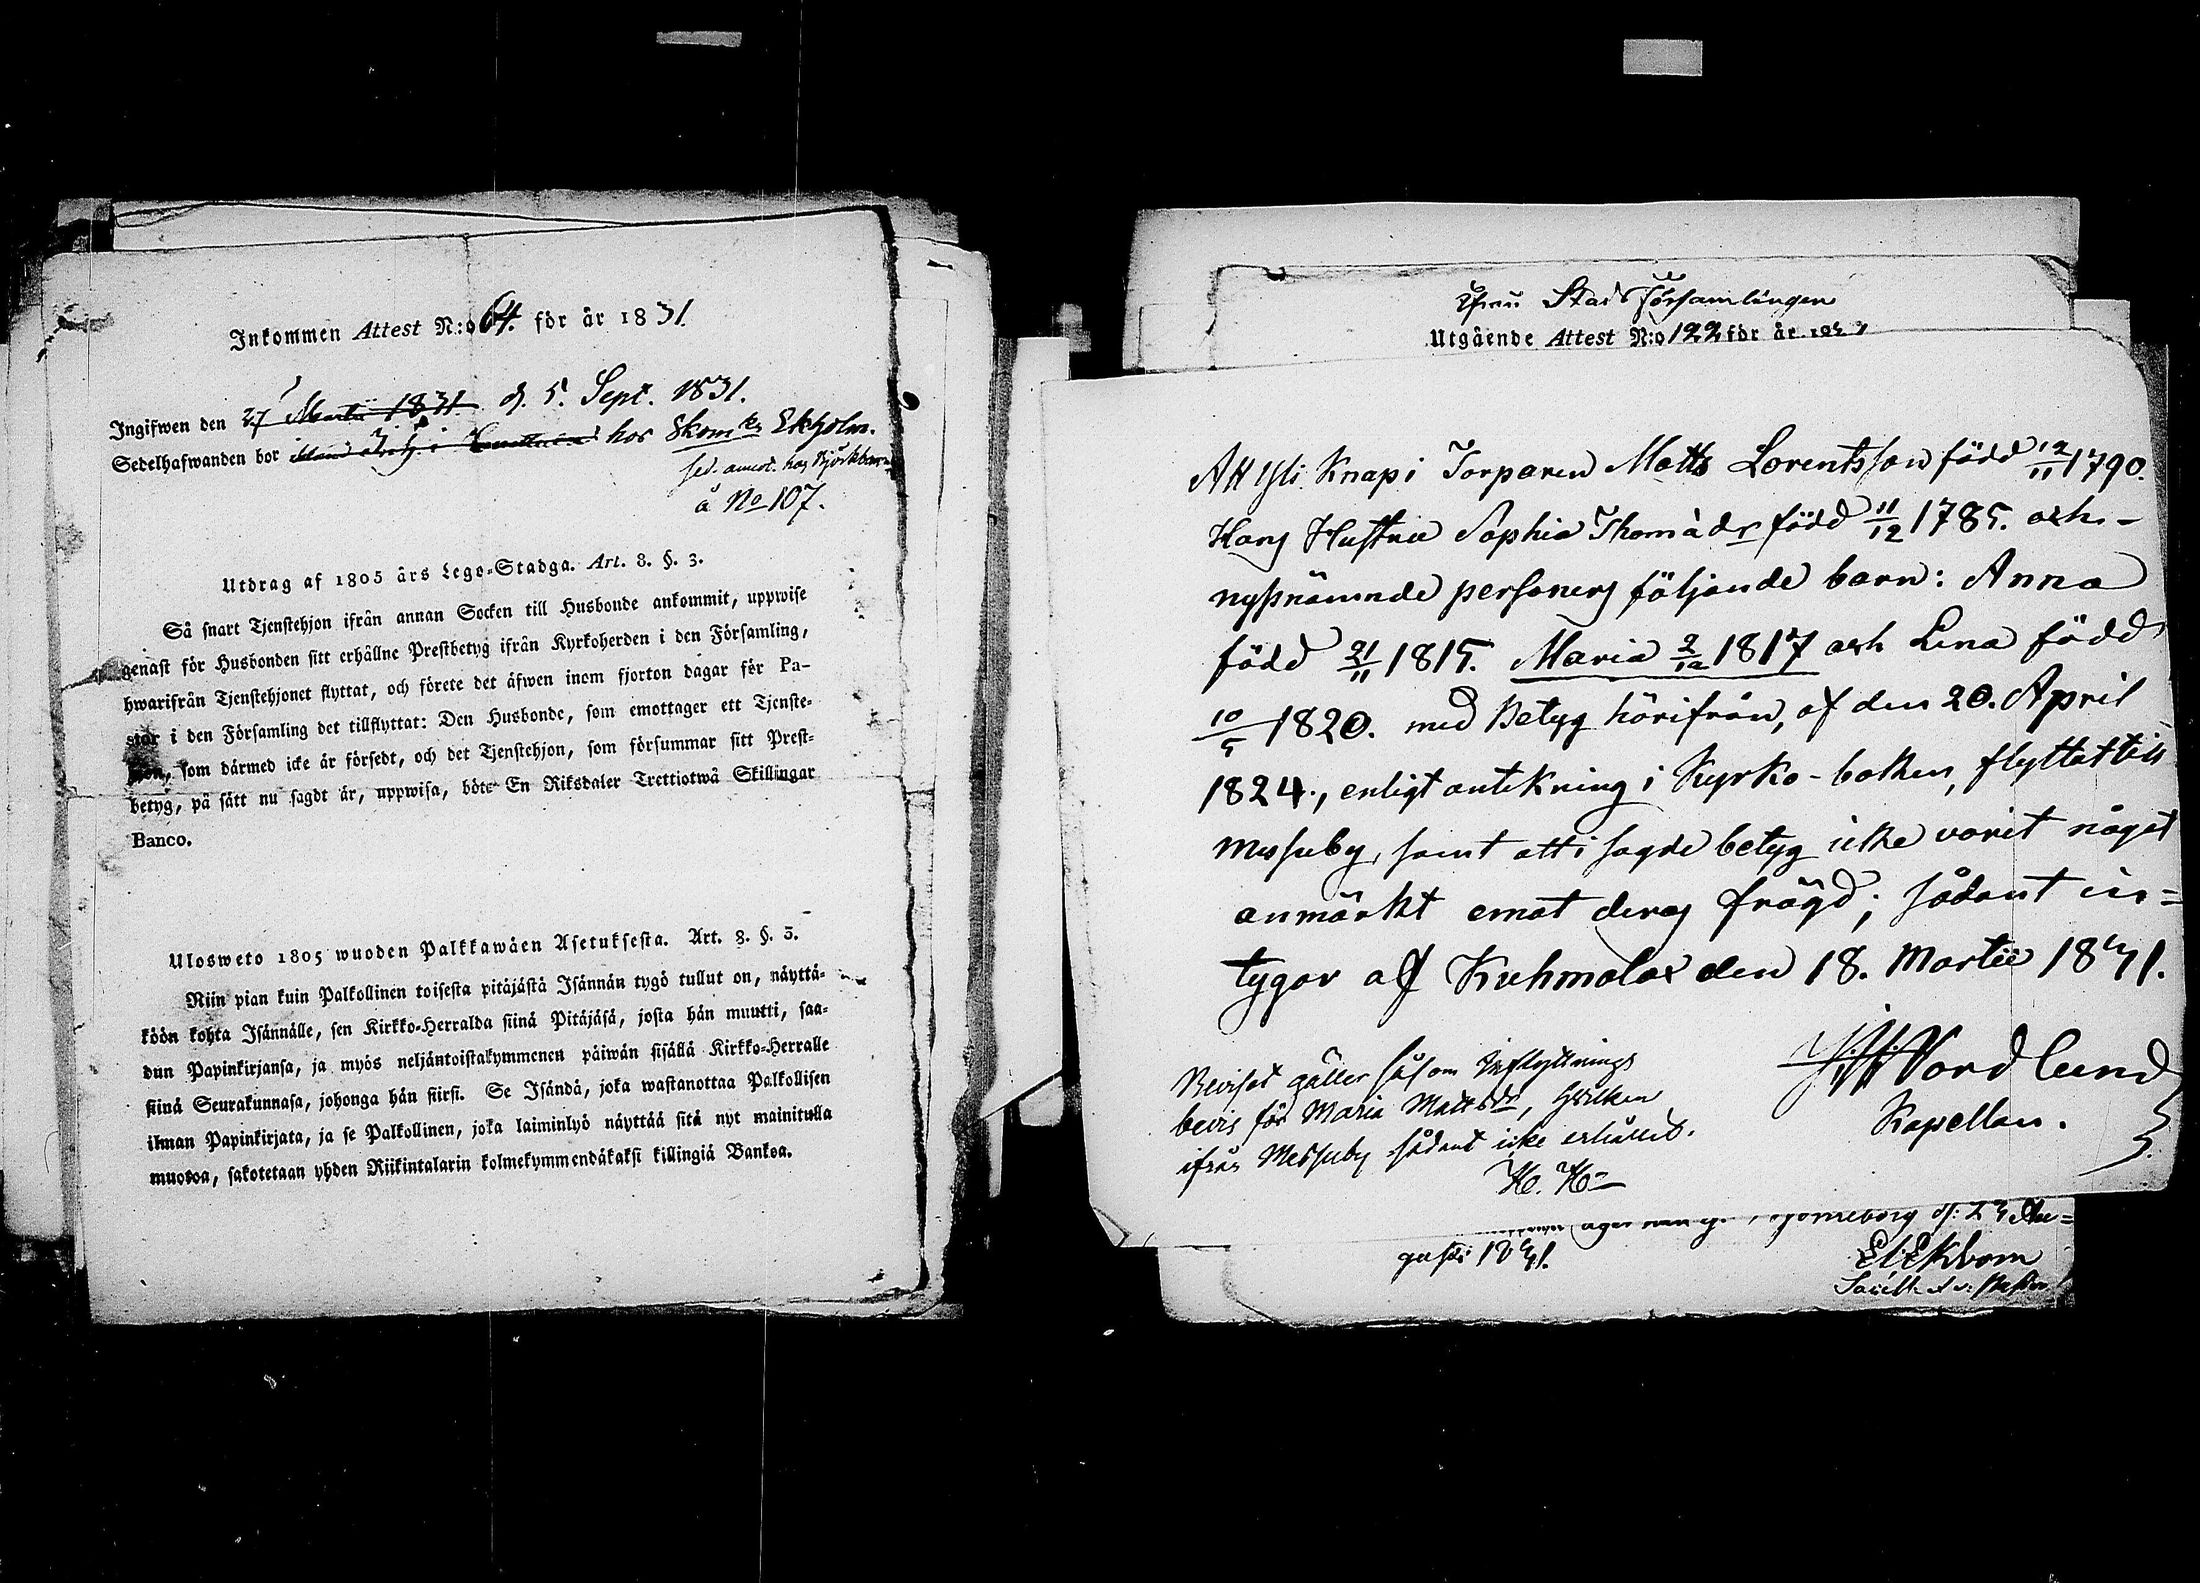 Inkommen Attest N:o 64. för år 1831.
Ingifwen den 27 Martii 1831. d. 5. Sept. 1831.
Sedelhafwanden bor hos Skom. Ekholm.
å No 107.
Utdrag af 1805 års Lego-Stadga. Art. 8. §. 3.
Så snart Tjenstehjon ifrån annan Socken till Husbonde ankommit, uppwise
genast för Husbonden sitt erhållne Prestbetyg ifrån Kyrkoherden i den Församling,
hwarifrån Tjenstehjonet flyttat, och förete det äfwen inom fjorton dagar för Pa-
stor i den Församling det tillflyttat: Den Husbonde, som emottager ett Tjenste-
hjon, som därmed icke är försedt, och det Tjenstehjon, som försummar sitt Prest-
betyg, på sätt nu sagdt är, uppwisa, böte En Riksdaler Trettiotwå Skillingar
Banco.
Ulosweto 1805 wuoden Palkkawäen Asetuksesta. Art. 8. §. 3.
Niin pian kuin Palkollinen toisesta pitäjästä Isännän tygö tullut on, näyttä-
köön kohta Isännälle, sen Kirkko-Herralda siinä Pitäjäsä, josta hän muutti, saa-
dun Papinkirjansa, ja myös neljäntoistakymmenen päiwän sisällä Kirkko-Herralle
siinä Seurakunnasa, johonga hän siirsi. Se Isändä, joka wastanottaa Palkollisen
ilman Papinkirjata, ja se Palkollinen, joka laiminlyö näyttää sitä nyt mainitulla
muotoa, sakotetaan yhden Riikintalarin kolmekymmendäkaksi killingiä Bankoa.
Ifrån Stads Församlingen
Utgående Attest N:o 122 för år
Att Knapi Torparen Matts Lorentsson född 12/11 1790.
Hans Hustru Sophia Thomädr född 11/12 1785. och
nyssnämnde personers följande barn: Anna
född 21/11 1815. Maria 2/12 1817 och Lena född
10/5 1820. med Betyg härifrån, af den 20. April
1824., enligt antekning i Kyrko-boken, flyttat till
Messuby, samt att i sagde betyg icke varit något
anmärkt emot deras frägd; sådant in=
tygar af Kuhmalax den 18. Martii 1831.
Nordlund
Kapellan.
Beviset gäller såsom Inflyttnings
bevis för Maria Mattsdr, hvilken
ifrån Messuby sådant icke erhållit.
Björneborg d: 23 Au=
gusti 1831.
Ekbom